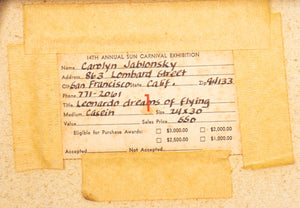 14TH ANNUAL SUN CARNIVAL EXHIBITION
Name Carolyn Jablonsky
Address 863 Lombard Street
City San Francisco State Calif. Zip 94133
Phone 771-2061
Title Leonardo dreams of flying
Medium Casein Size 24x30
Value Sales Price 650
Eligible for Purchase Awards: $3,000.00 $2,000.00
$2,500.00 $1,000.00
Accepted Not Accepted